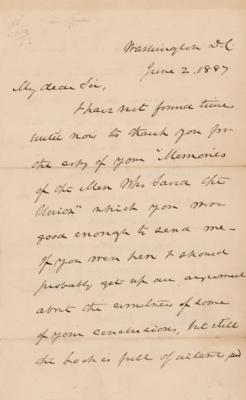 Washington D.C
June 2. 1887
My dear Sir,
I have not found time
until now to thank you for
the copy of your "Memories
of the Men Who Saved the
Union" which you were
good enough to send me-
If you were here I should
probably get up an argument
about the correctness of some
of your conclusions, but still
the book is full of interest and